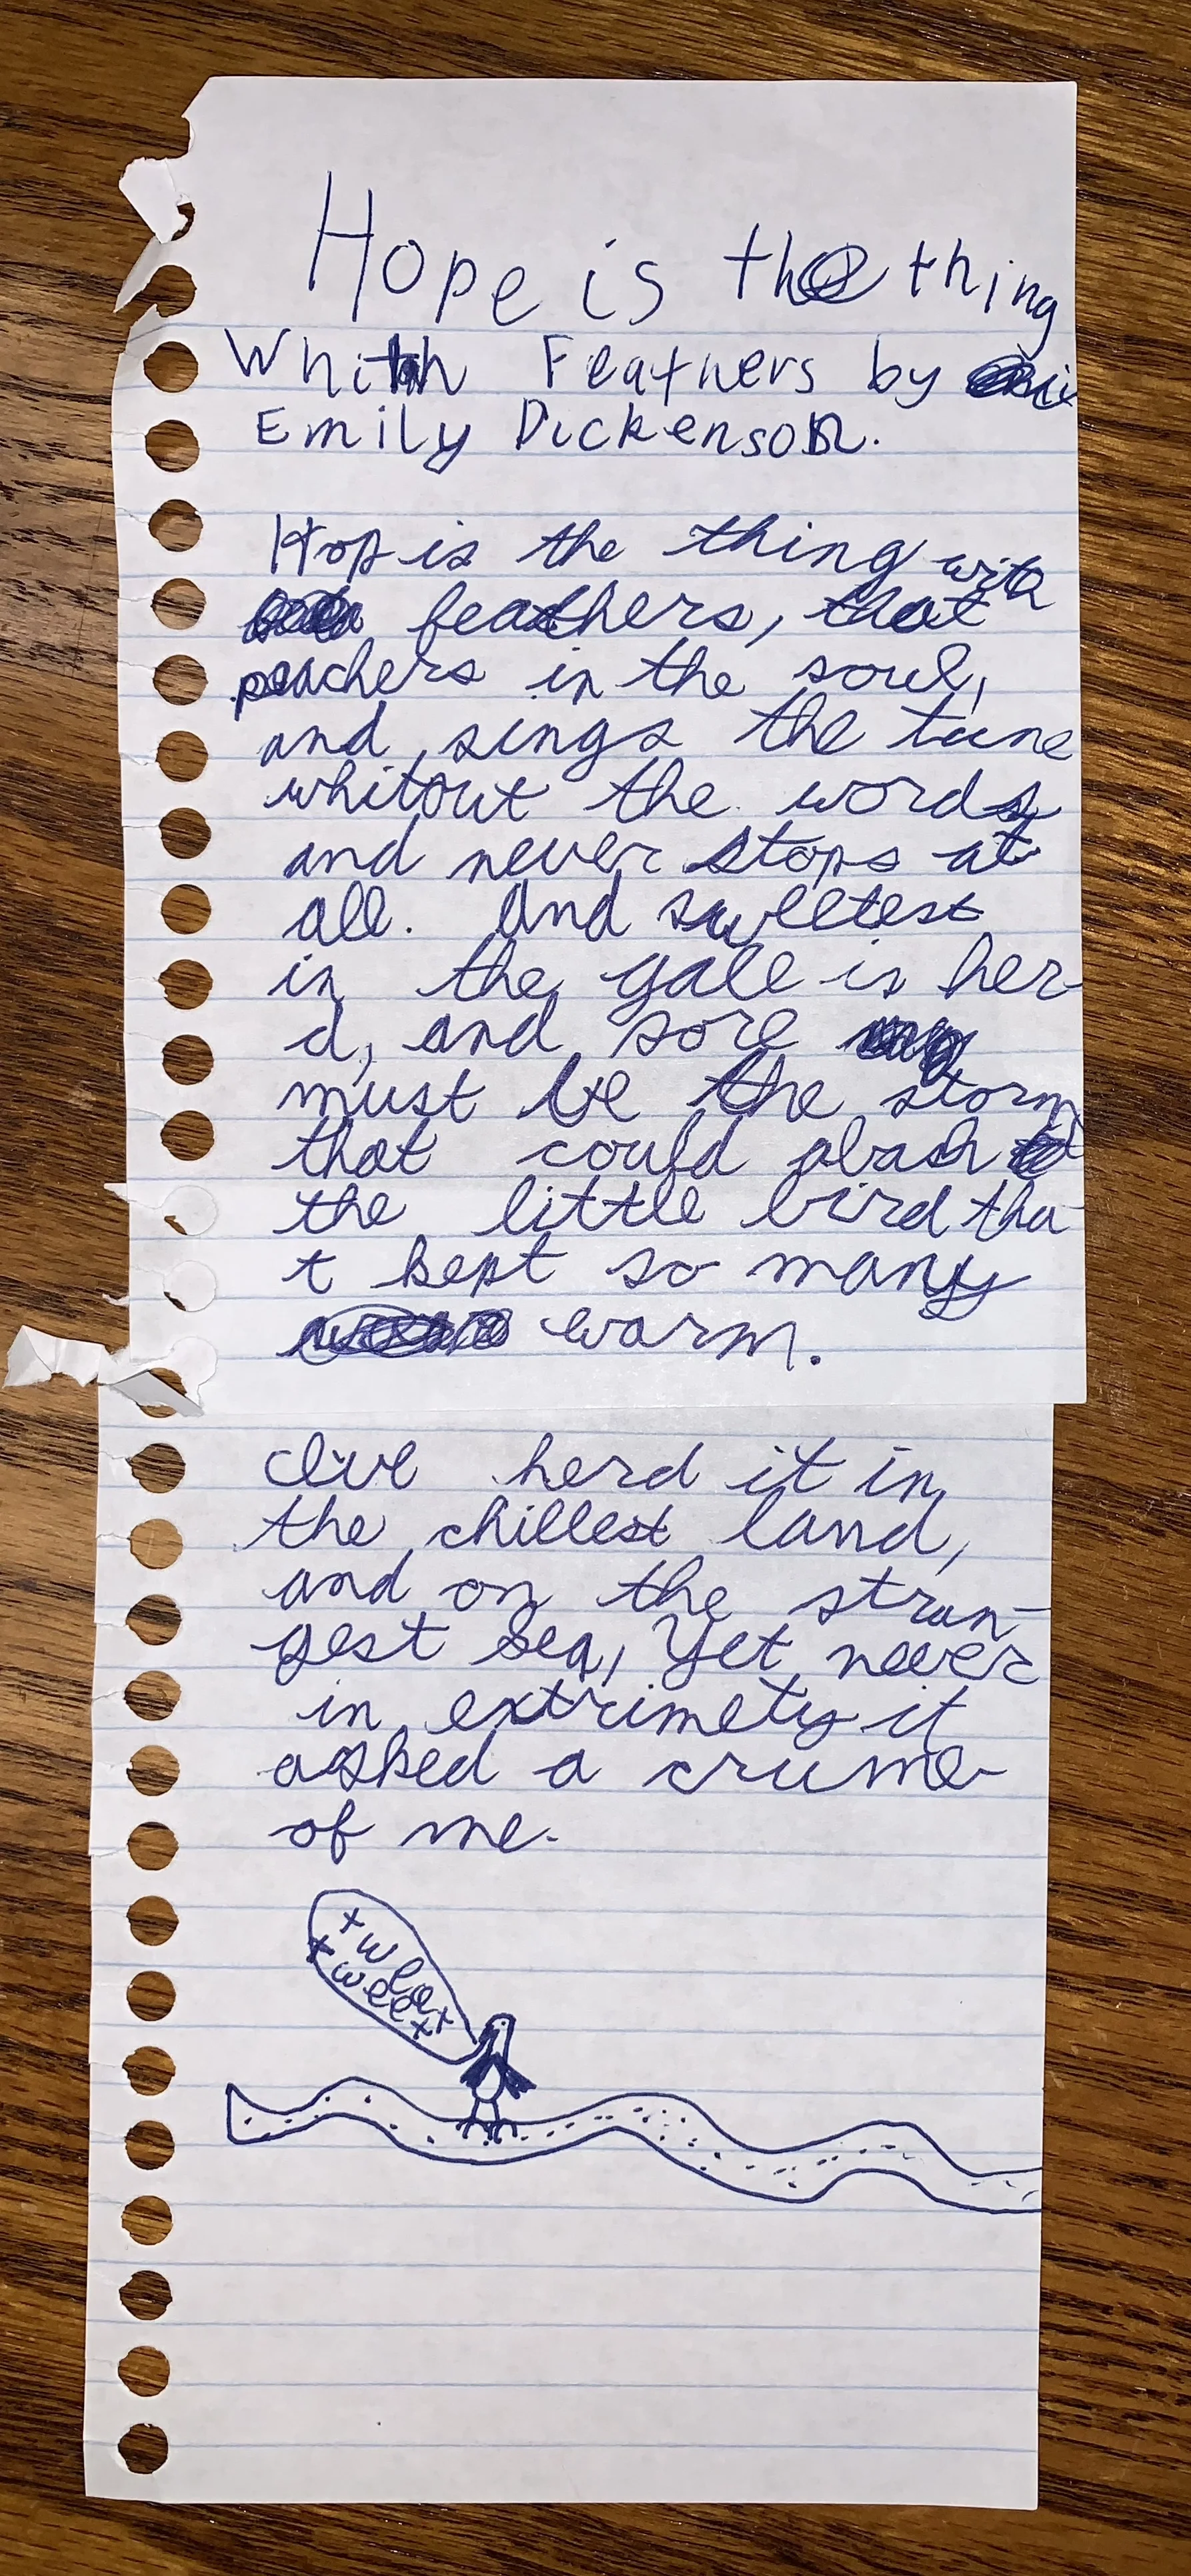 Hope is the thing
Whith Feathers by
Emily Dickenson.
Hop is the thing with
feathers, that
peachers in the soul,
and sings the tune
whitout the words
and never stops at
all. And sweetest
in the gale is her-
d, and sore
must be the storm
that could abash
the little bird tha-
t kept so many
warm.
I've herd it in
the chillest land,
and on the stran-
gest sea, Yet never
in extrimety it
asked a crume
of me.
tweet
tweet